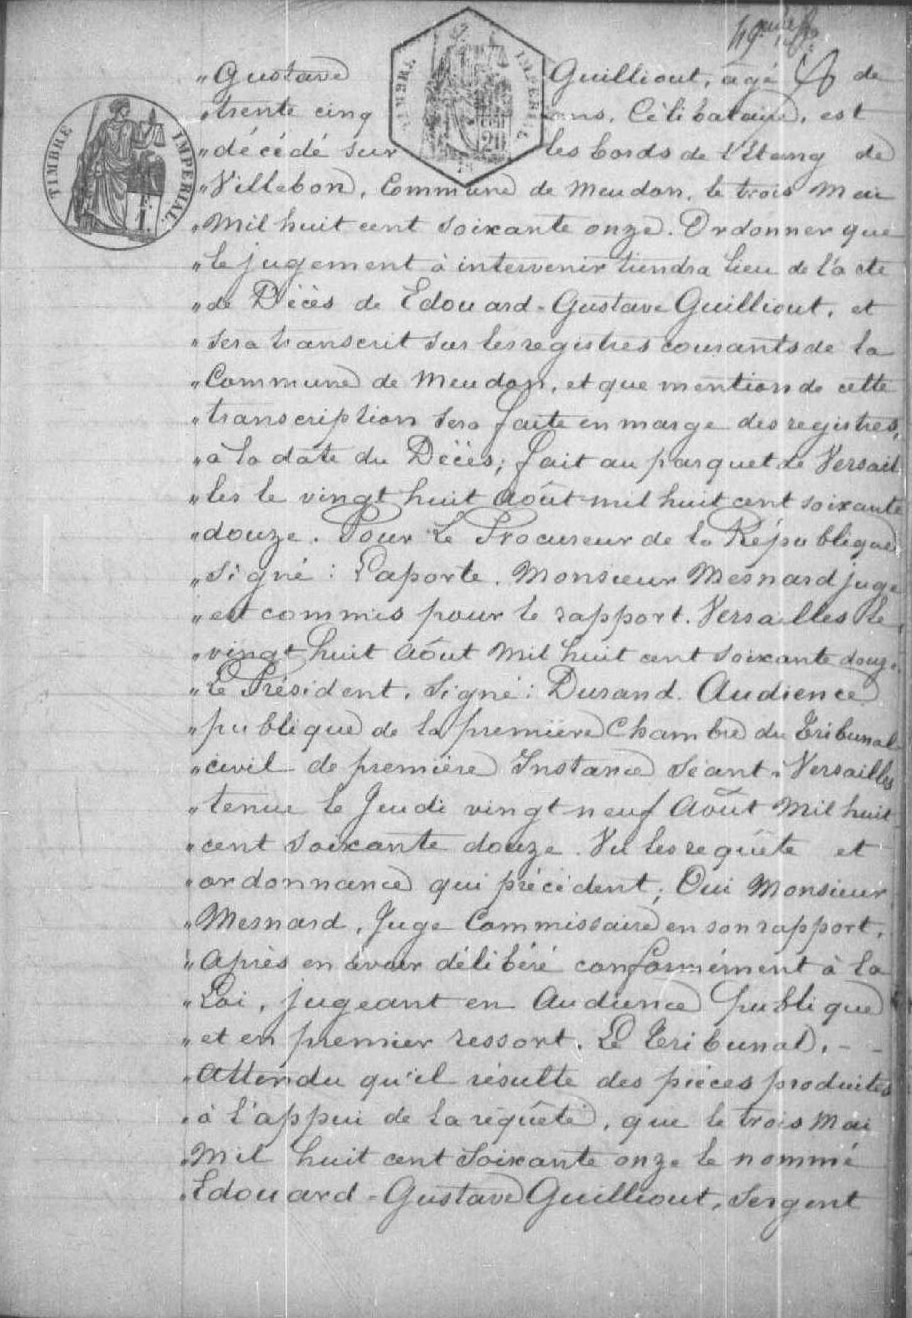 TIMBRE IMPERIAL
TIMBRE IMPERIAL
„ Gustave Guilliout, âgé de
„ trente cinq ans, Célibataire, est
„ décédé sur les bords de l'Etang de
„ Villebon, Commune de Meudon, le trois Mai
„ Mil huit cent soixante onze. Ordonner que
„ le jugement à intervenir tiendra lieu de l'acte
„ de Décès de Edouard-Gustave Guilliout, et
„ sera transcrit sur les registres courants de la
„ Commune de Meudon, et que mention de cette
„ transcription sera faite en marge des registres,
„ à la date du Décès; fait au parquet de Versail
„ les le vingt huit Août mil huit cent soixante
„ douze. Pour le Procureur de la République
„ signé : Laporte. Monsieur Mesnard juge
„ est commis pour le rapport. Versailles le
„ vingt huit Août Mil huit cent soixante douze.
„ Le Président. Signé : Durand. Audience
„ publique de la première Chambre du Tribunal
„ civil de première Instance séant à Versailles
„ tenue le Jeudi vingt neuf Août Mil huit
„ cent soixante douze. Vu les requête et
„ ordonnance qui précèdent; Oui Monsieur
„ Mesnard, Juge Commissaire en son rapport,
„ Après en avoir délibéré conformément à la
„ Loi, jugeant en Audience publique
„ et en premier ressort. Le Tribunal. - -
„ Attendu qu'il résulte des pièces produites
„ à l'appui de la requête, que le trois Mai
„ Mil huit cent soixante onze le nommé
„ Edouard-Gustave Guilliout, Sergent